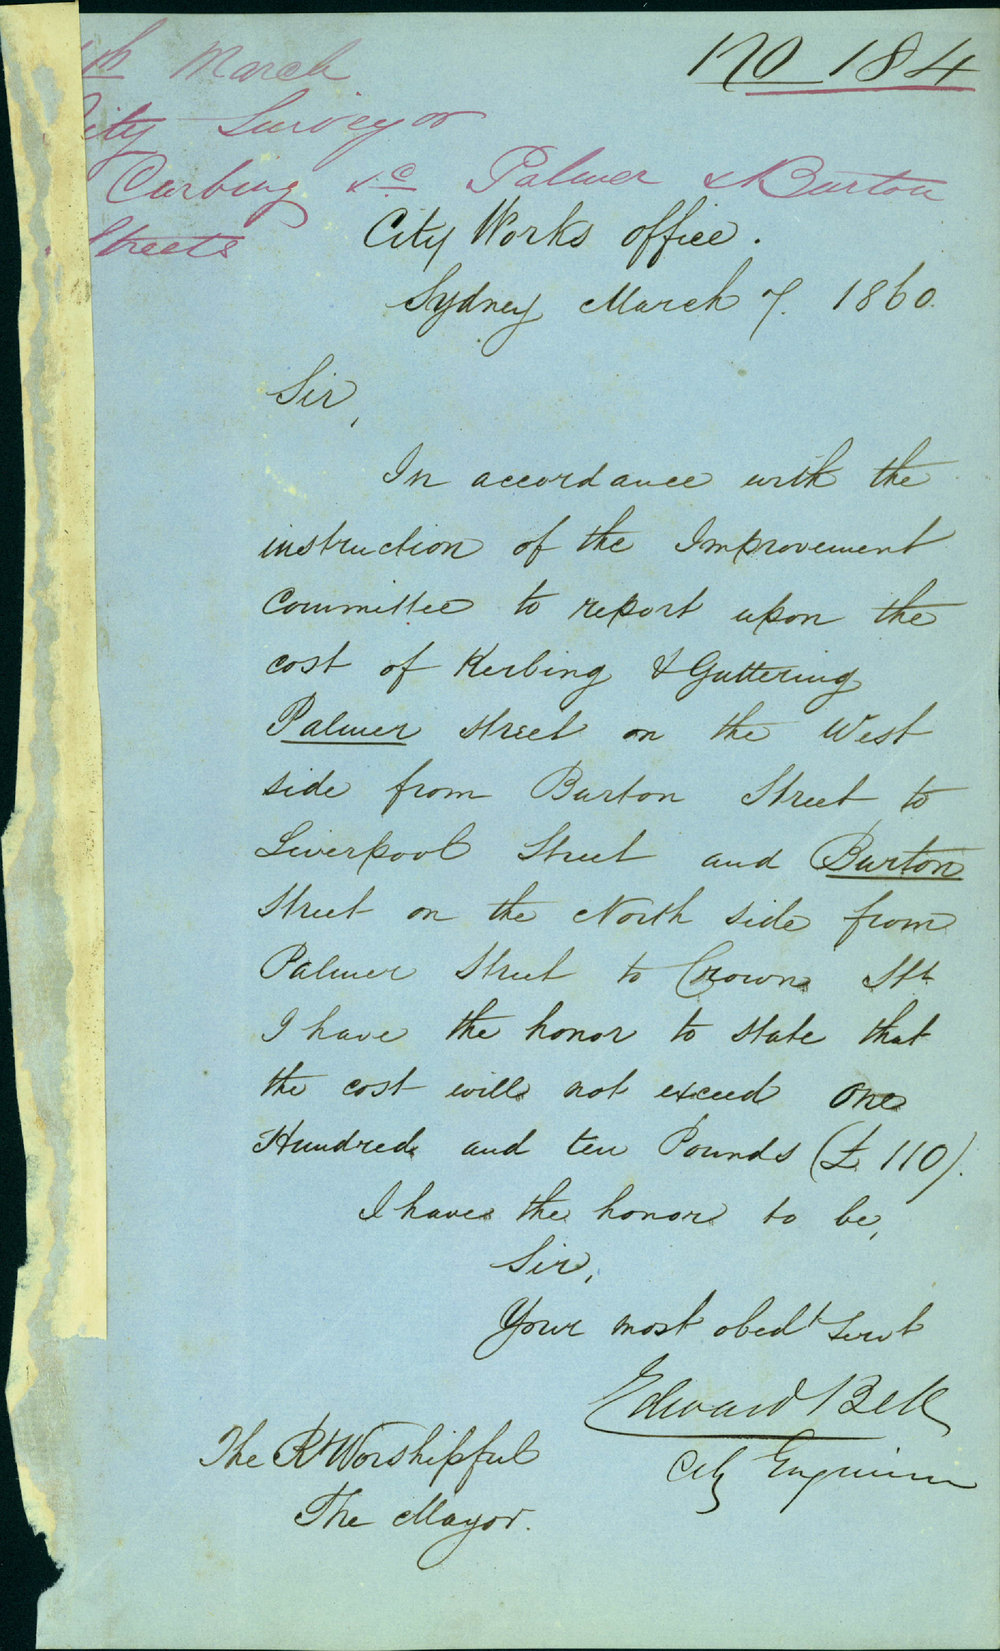 No 184
th March
City Surveyor
Curbing &c Palmer & Burton
Streets
City Works office.
Sydney March 7. 1860.
Sir,
In accordance with the
instruction of the Improvement
Committee to report upon the
cost of Kerbing & Guttering
Palmer Street on the West
side from Burton Street to
Liverpool Street and Burton
Street on the North side from
Palmer Street to Crown Stt
I have the honor to state that
the cost will not exceed One
Hundred and ten Pounds (£110).
I have the honor to be,
Sir,
Your most obedt Servt
Edward Bell
City Engineer
The Rt Worshipful
The Mayor.